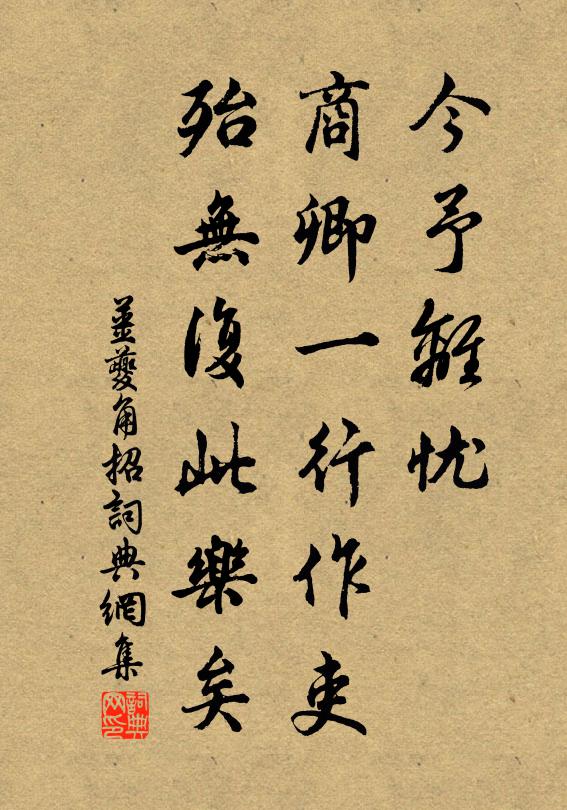 今予離忧
商卿一行作吏
殆無復此樂矣
姜夔角招詞典網集
詞典网印